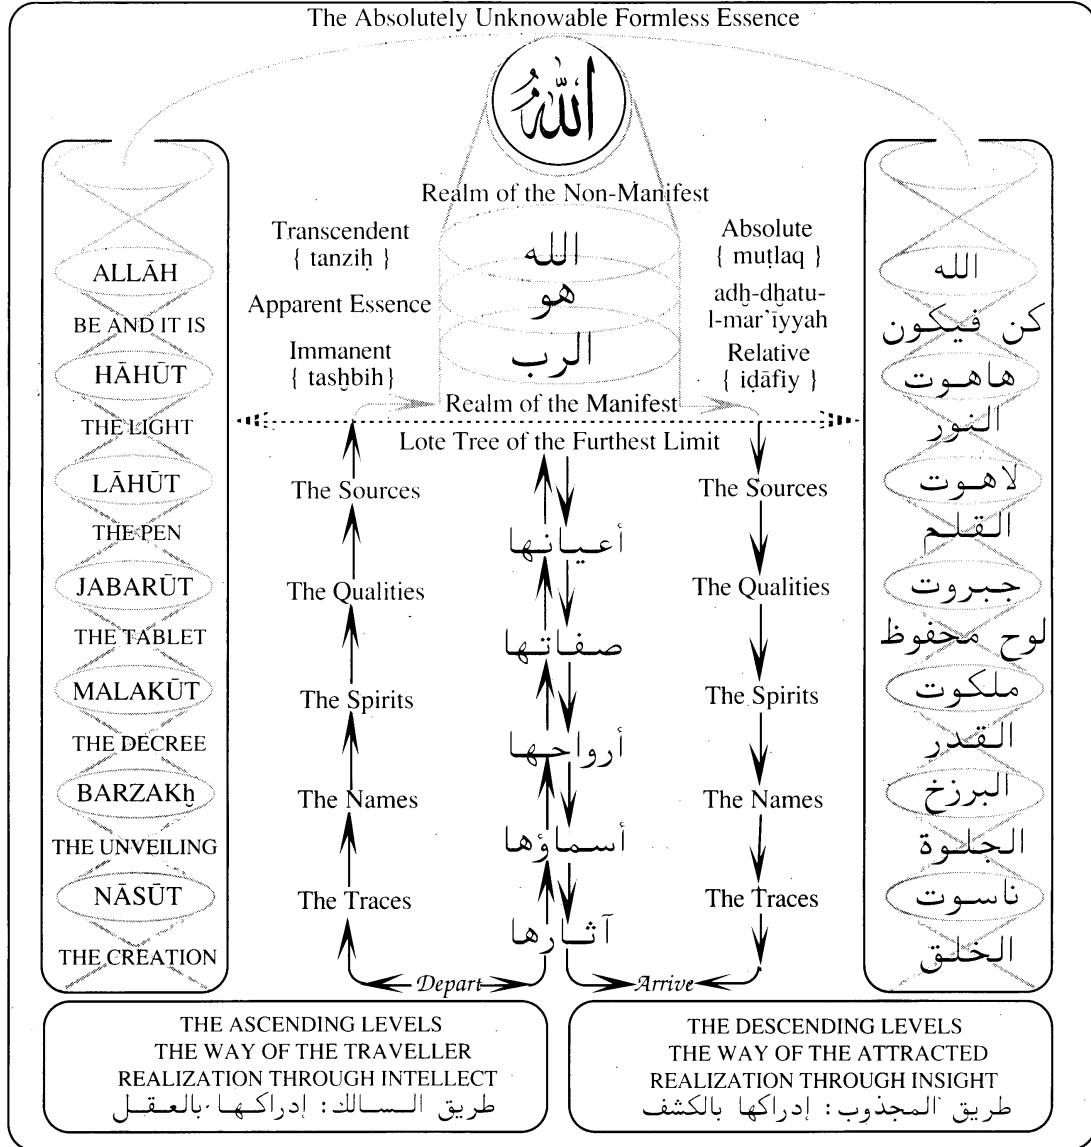 The Absolutely Unknowable Formless Essence
اللهُ
Realm of the Non-Manifest
Transcendent
{ tanziḥ }
الله
Absolute
{ muṭlaq }
Apparent Essence
هو
adẖ-dẖatu-
l-mar'īyyah
Immanent
{ tasẖbih}
الرب
Relative
{ iḍāfiy }
Realm of the Manifest
Lote Tree of the Furthest Limit
ALLĀH
BE AND IT IS
HĀHŪT
THE LIGHT
LĀHŪT
THE PEN
JABARŪT
THE TABLET
MALAKŪT
THE DECREE
BARZAKẖ
THE UNVEILING
NĀSŪT
THE CREATION
The Sources
The Qualities
The Spirits
The Names
The Traces
أعيانها
صفاتها
أرواحها
أسماؤها
آثارها
The Sources
The Qualities
The Spirits
The Names
The Traces
Depart
Arrive
الله
كن فيكون
هاهوت
النور
لاهوت
القلم
جبروت
لوح محفوظ
ملكوت
القدر
البرزخ
الجلوة
ناسوت
الخلق
THE ASCENDING LEVELS
THE WAY OF THE TRAVELLER
REALIZATION THROUGH INTELLECT
طريق السالك: إدراكها بالعقل
THE DESCENDING LEVELS
THE WAY OF THE ATTRACTED
REALIZATION THROUGH INSIGHT
طريق المجذوب: إدراكها بالكشف